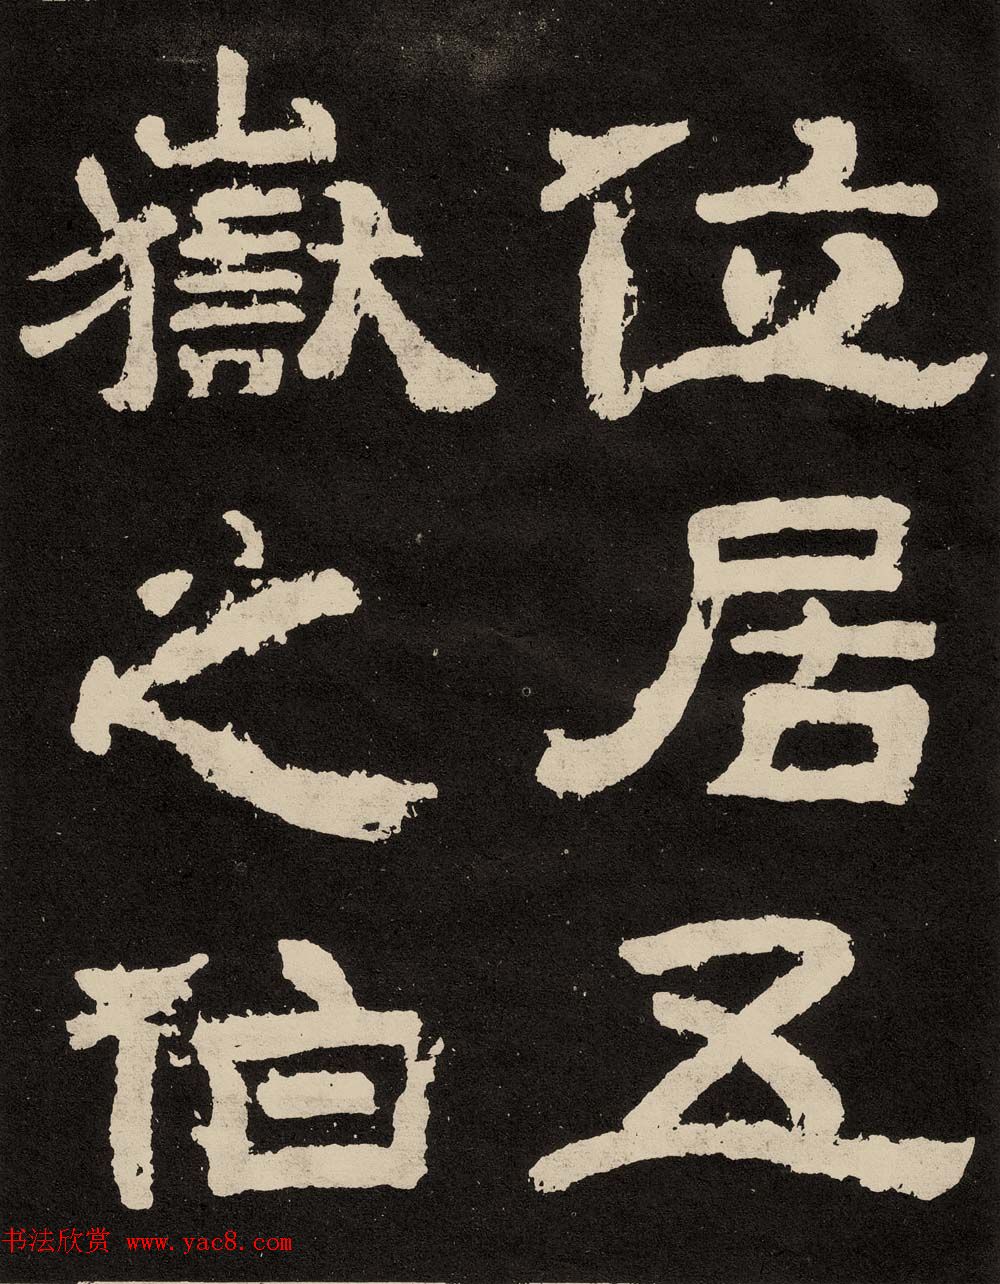 位居五
嶽之伯
书法欣赏 www.yac8.com